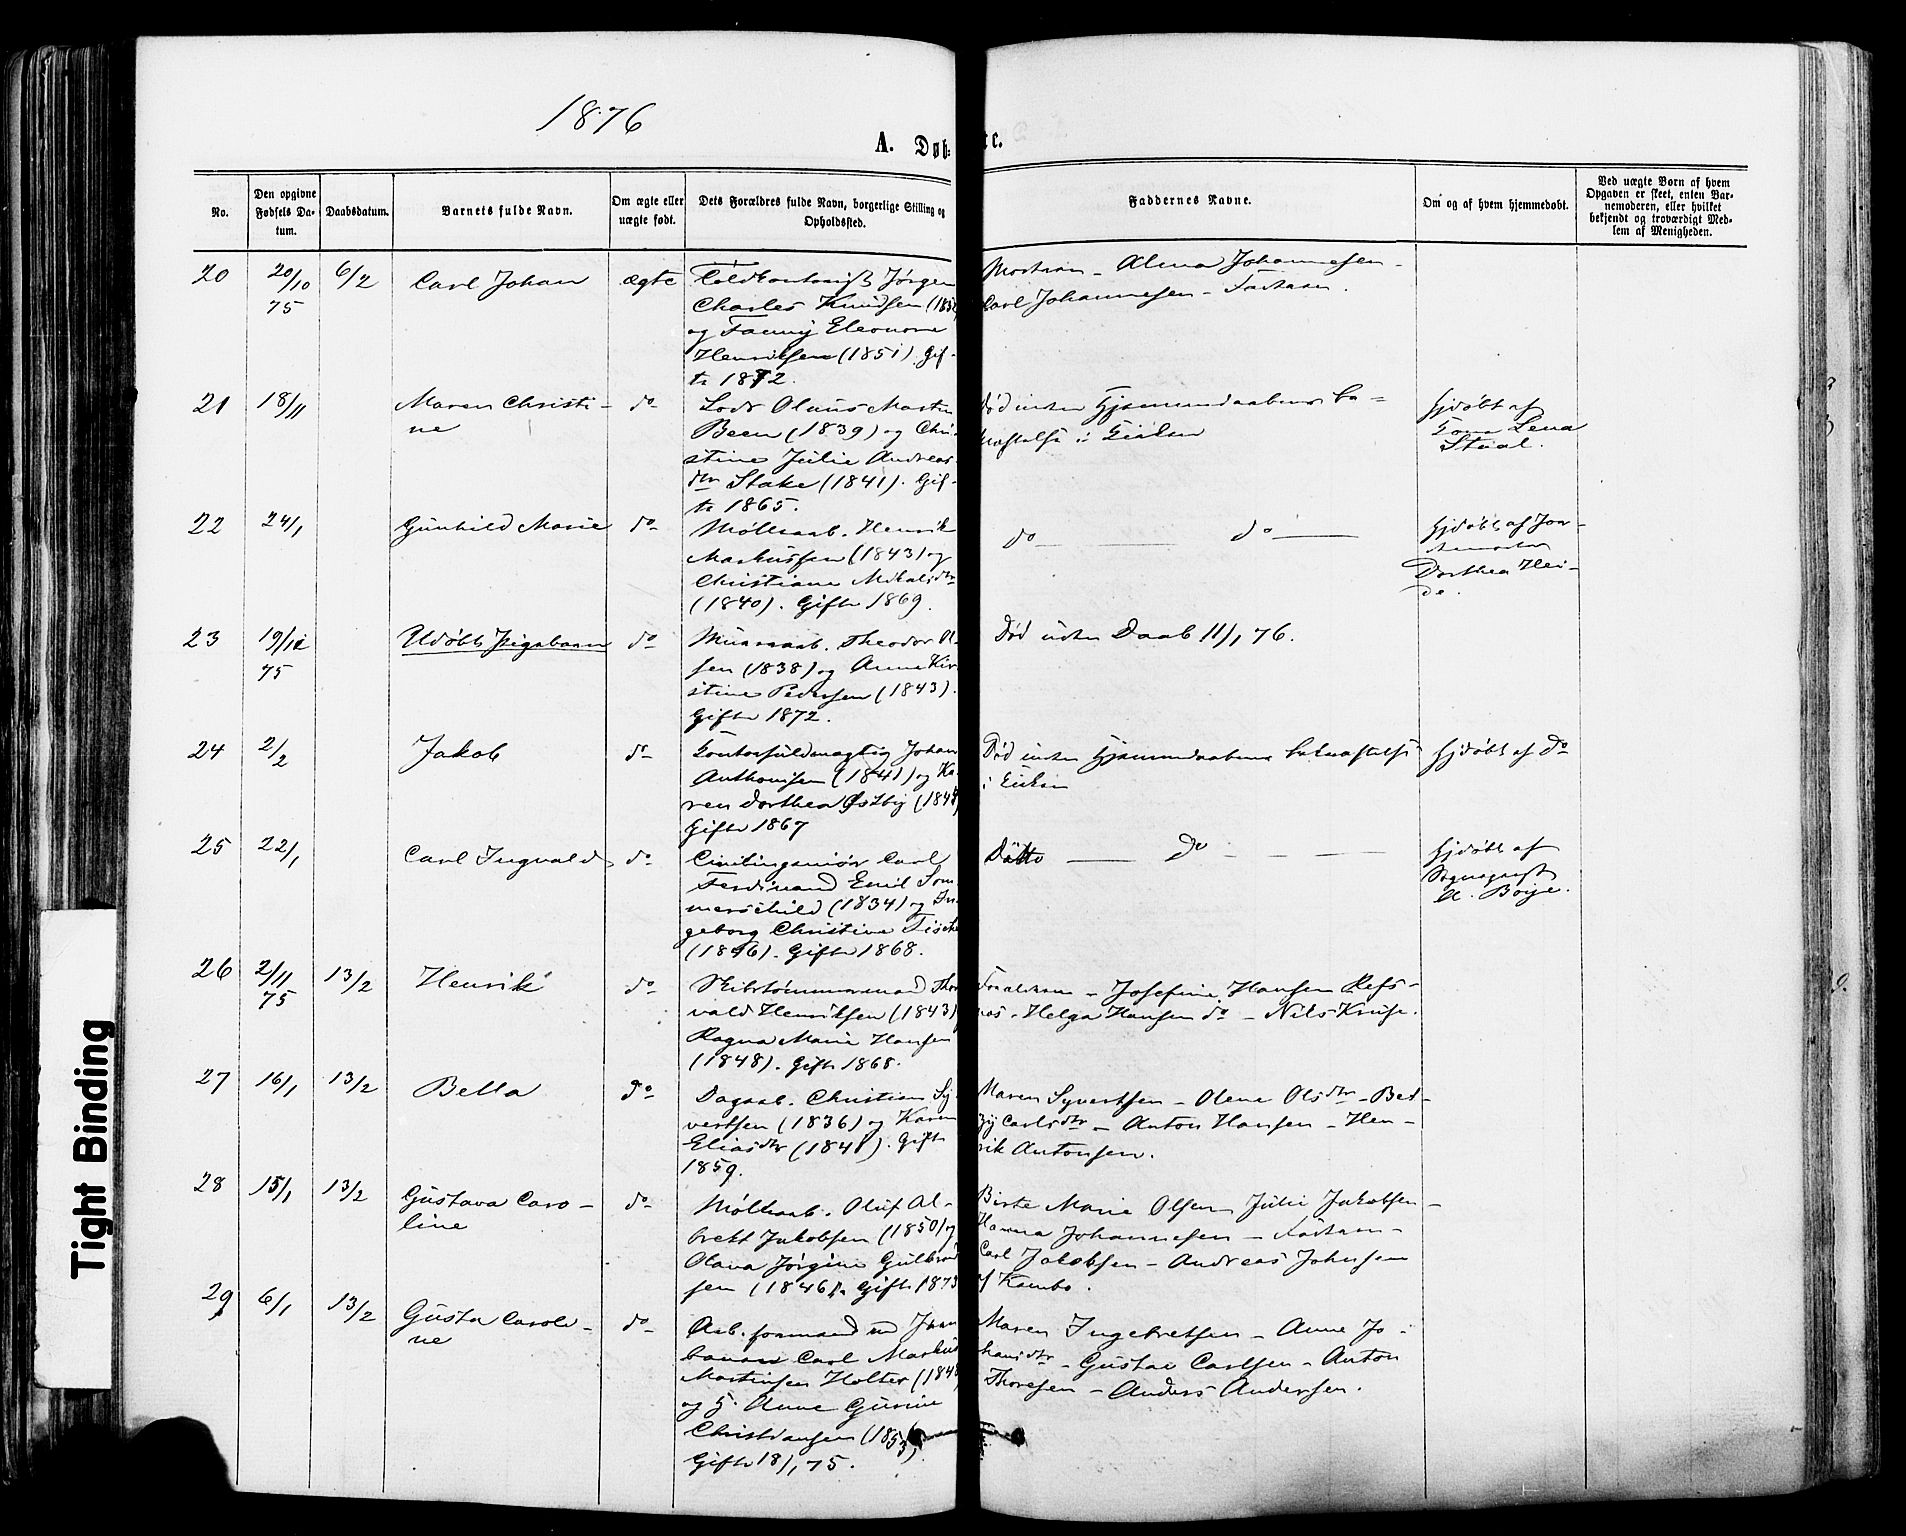 1876
A. Døb: tc.
No.
Den opgivne Fødsels Da-tum.
Daabsdatum.
Barnets fulde Navn.
Om ægte eller uægte født.
Dets Forældres fulde Navn, borgerlige Stilling og Opholdssted.
Faddernes Navne.
Om og af hvem hjemmedøbt.
Ved uægte Børn af hvem Opgaven er skeet, enten Bar-nemoderen, eller hvilket bekjendt og troværdigt Med-lem af Menigheden.
20 20/10 75 6/2 Carl Johan ægte
Jørgen
Charles Knudsen
og Fanny Eleonore
Henriksen (1851). Gif-
te 1872.
Alma Johannesen -
Carl Johannesen - Faderen.
21 18/11 Maren Christi-
ne
do
Lods Olaus Martin
Been (1839) og Chri-
stine Julie Andreas-
dtr Stake (1841). Gif-
te 1865.
Død inden Hjemmedaabens be-
kræftelse i Kirken
Hjdøbt af
Lena
22 24/1 Gunhild Marie do
Møllearb. Henrik
Markussen (1843) og
Christiane Mikalsdtr
(1840). Gifte 1869.
do do
Hjdøbt af Jor-
demoder
Dorthea Hei-
de.
23 19/12 75 Udøbt Pigebarn do
Murarb. Theodor Ol-
sen (1838) og Anne Kir-
stine Pedersen (1843).
Gifte 1872.
Død uden Daab 11/1 76.
24 2/2 Jakob do
Contorfuldmægtig Johan
Anthonisen (1841) og Ka-
ren Dorthea Østby
Gifte 1867
Død inden Hjemmedaabens bekræftelse
i Kirken
Hjdøbt af do
25 22/1 Carl Ingvald do
Civilingeniør Carl
Ferdinand Emil Som-
merschild (1834) og In-
geborg Christine
(1846). Gifte 1868.
Ditto do
Hjdøbt af
Sognepræst
Boye.
26 2/11 75 13/2 Henrik do
Skibstømmermand Thor
vald Henriksen (1843)
Ragna Marie Hansen
(1848). Gifte 1868.
Forældrene - Josefine Hansen Refs-
nes. Helga Hansen do - Nils Kruse.
27 16/1 13/2 Bella do
Dagarb. Christian Sy-
vertsen (1836) og Karen
Eliasdtr (1841). Gifte
1859.
Maren Syvertsen - Olene Olsdtr - Bet-
zy Carlsdtr - Anton Hansen - Hen-
rik Antonsen.
28 15/1 13/2 Gustava Caro-
line
do
Møllearb. Oluf Al-
brekt Jakobsen (1850) og
Olava Jørgine Gulbrand
sen (1846). Gifte 1873
Birte Marie Olsen Julie Jakobsen -
Hanna Johannesen - Faderen -
Carl Jakobsen - Andreas Johnsen
af Kambo.
29 6/1 13/2 Gusta Caroli-
ne
do
Arb. formand ved Jern
banen Carl Markus
Martinsen Holter
og H. Anne Gurine
Christiansen (1853)
Gifte 18/1 75.
Maren Ingebretsen - Anne Jo-
hansdtr - Gustav Carlsen - Anton
Thoresen - Anders Andersen.
Tight Binding